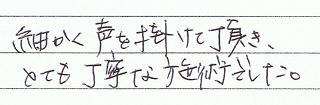 細かく声を掛けて頂き、
とても丁寧な施術でした。